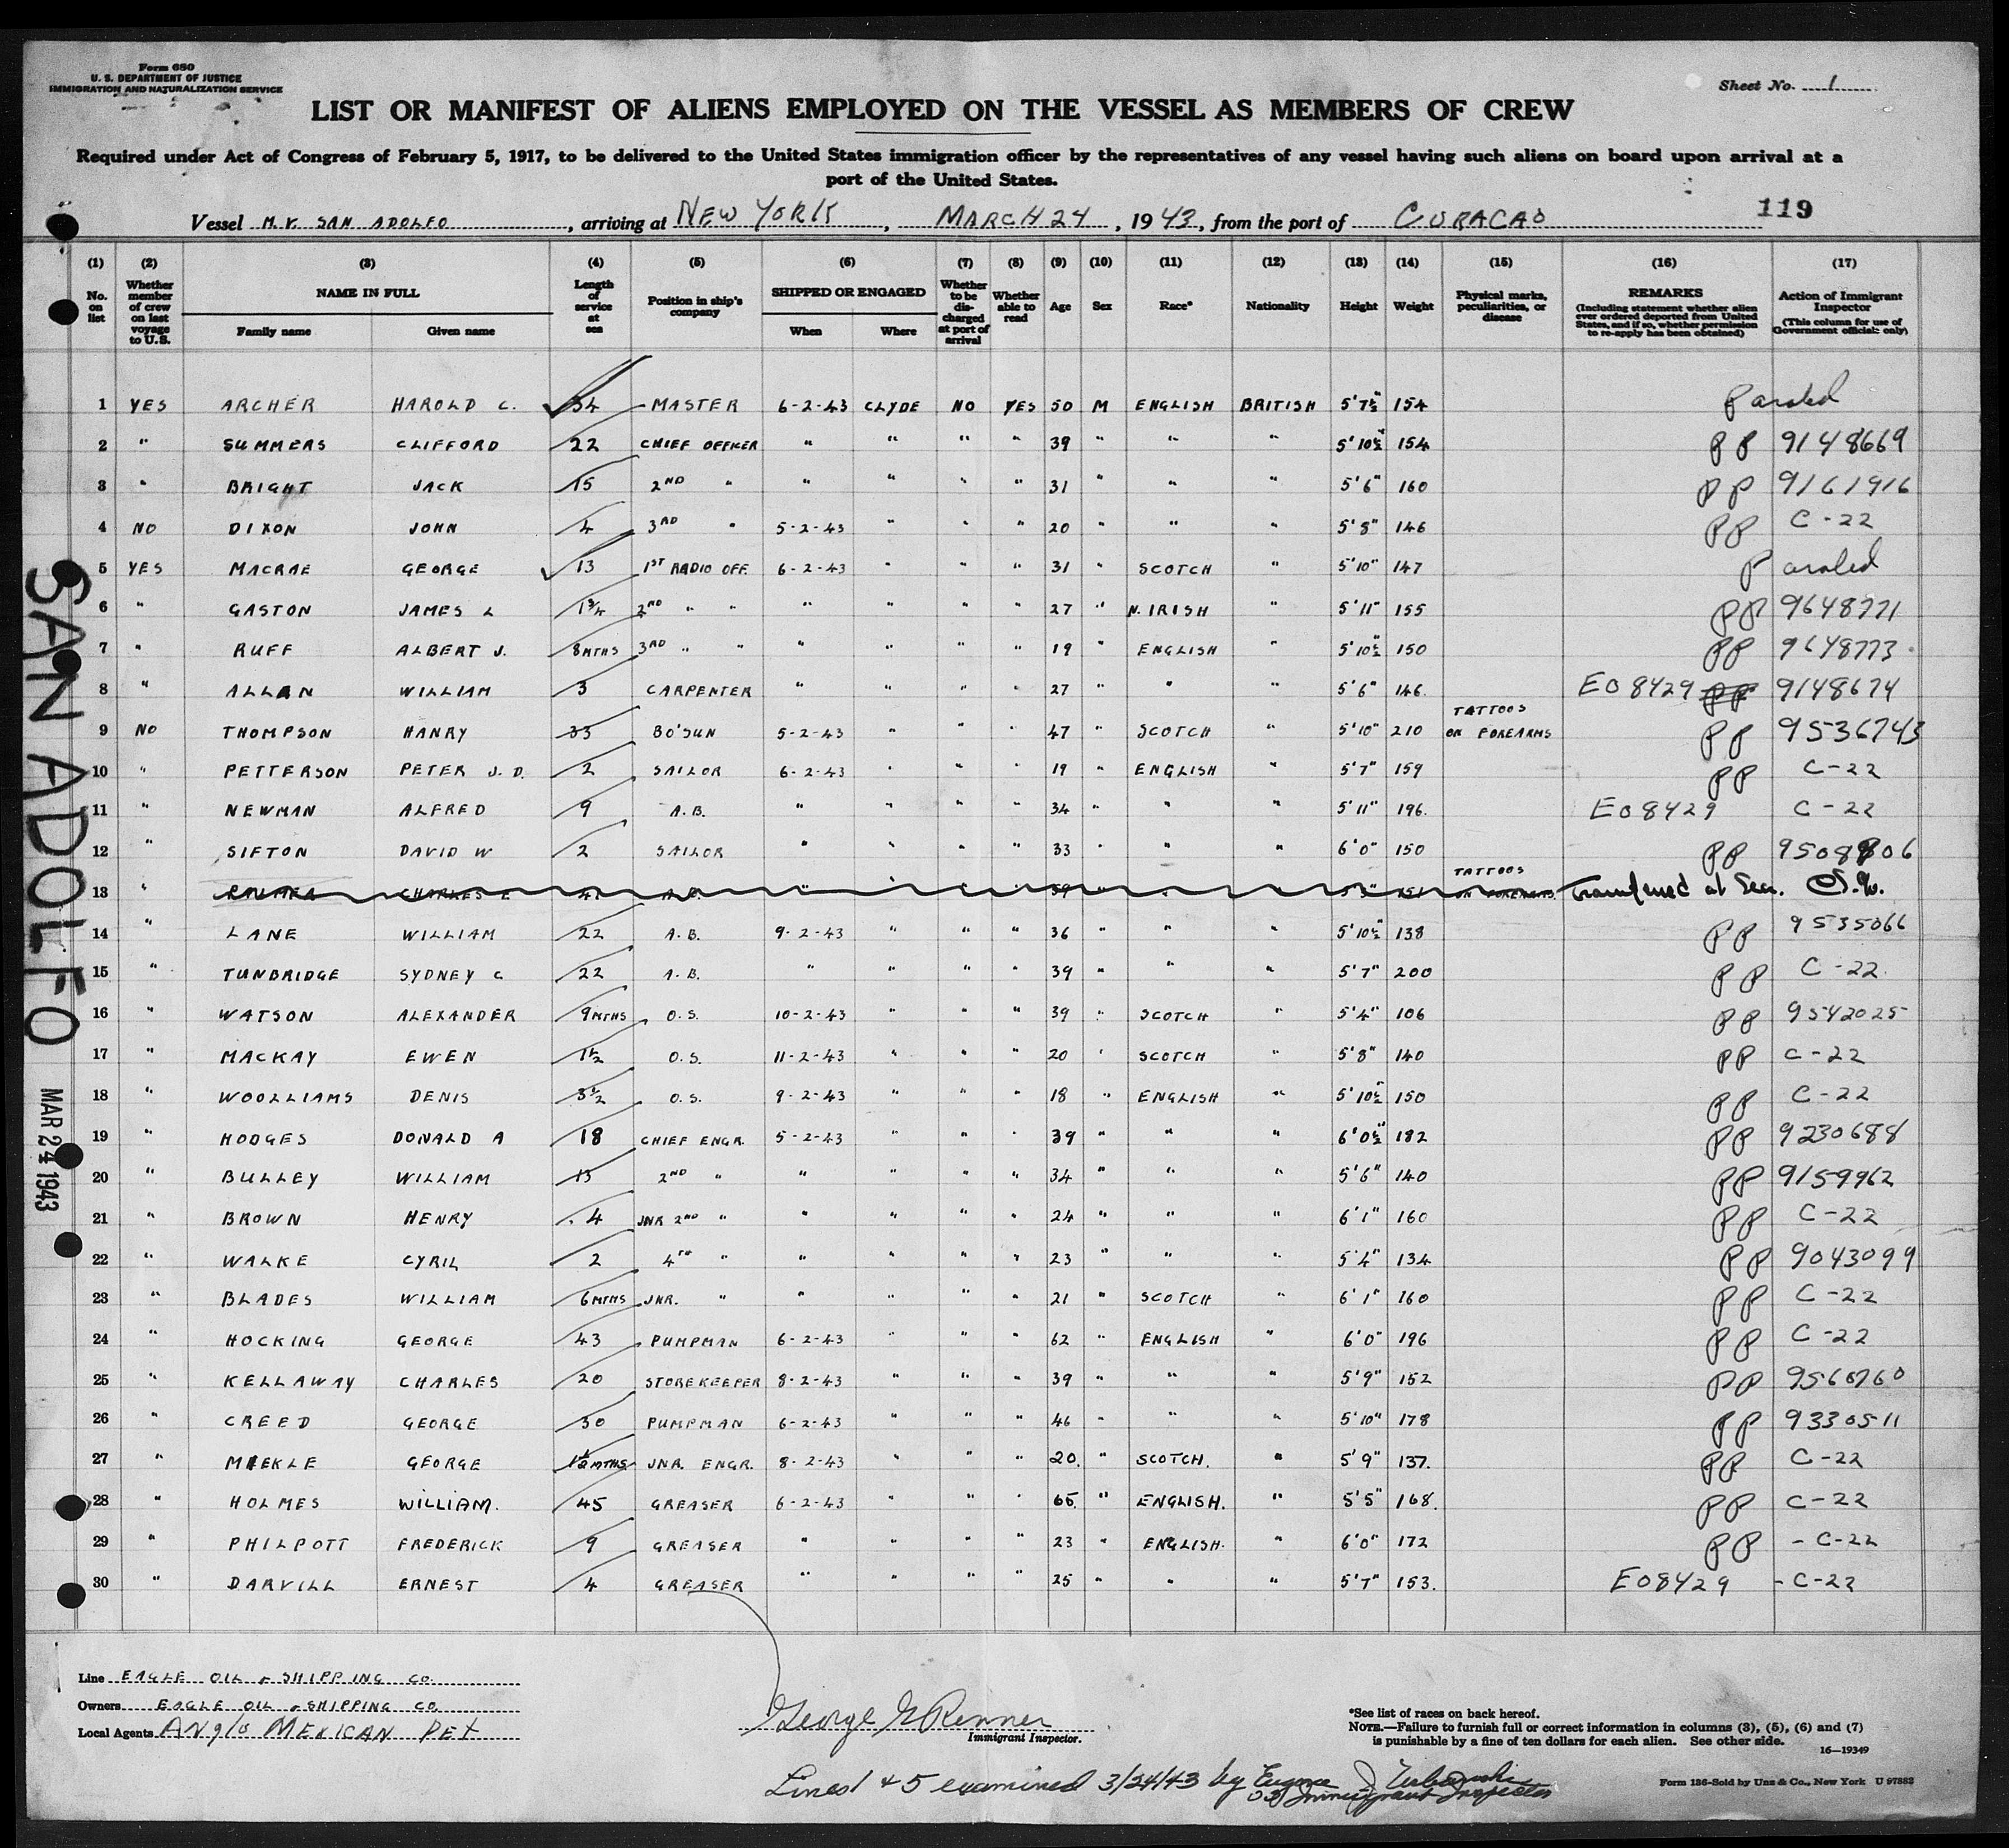 Form 680
U. S. DEPARTMENT OF JUSTICE
IMMIGRATION AND NATURALIZATION SERVICE
Sheet No. 1
LIST OR MANIFEST OF ALIENS EMPLOYED ON THE VESSEL AS MEMBERS OF CREW
Required under Act of Congress of February 5, 1917, to be delivered to the United States immigration officer by the representatives of any vessel having such aliens on board upon arrival at a
port of the United States.
119
Vessel M.V. SAN ADOLFO, arriving at NEW YORK, MARCH 24, 1943, from the port of CURACAO
(1) (2) (3) (4) (5) (6) (7) (8) (9) (10) (11) (12) (13) (14) (15) (16) (17)
No. on list
Whether member of crew on last voyage to U.S.
NAME IN FULL
Family name Given name
Length of service at sea
Position in ship's company
SHIPPED OR ENGAGED
When Where
Whether to be discharged at port of arrival
Whether able to read
Age
Sex
Race*
Nationality
Height
Weight
Physical marks, peculiarities, or disease
REMARKS
(Including statement whether alien ever ordered deported from United States, and if so, whether permission to re-apply has been obtained)
Action of Immigrant Inspector
(This column for use of Government officials only)
1 YES ARCHER HAROLD C. 34 MASTER 6-2-43 CLYDE NO YES 50 M ENGLISH BRITISH 5'7½" 154 Paroled
2 " SUMMERS CLIFFORD 22 CHIEF OFFICER " " " " 39 " " " 5'10½" 154 PP 9148669
3 " BRIGHT JACK 15 2ND " " " " " 31 " " " 5'6" 160 PP 9161916
4 NO DIXON JOHN 4 3RD " 5-2-43 " " " 20 " " " 5'8" 146 PP C-22
5 YES MACRAE GEORGE 13 1ST RADIO OFF. 6-2-43 " " " 31 " SCOTCH " 5'10" 147 Paroled
6 " GASTON JAMES L 1¾ 2ND " " " " " " 27 " N. IRISH " 5'11" 155 PP 9648771
7 " RUFF ALBERT J. 8MTHS 3RD " " " " " " 19 " ENGLISH " 5'10½" 150 PP 9648773
8 " ALLAN WILLIAM 3 CARPENTER " " " " 27 " " " 5'6" 146. EO 8429 PP 9148674
9 NO THOMPSON HANRY 33 BO'SUN 5-2-43 " " " 47 " SCOTCH " 5'10" 210 TATTOOS ON FOREARMS PP 9536743
10 " PETTERSON PETER J. D. 2 SAILOR 6-2-43 " " " 19 " ENGLISH " 5'7" 159 PP C-22
11 " NEWMAN ALFRED 9 A.B. " " " " 34 " " " 5'11" 196. EO 8429 C-22
12 " SIFTON DAVID W 2 SAILOR " " " " 33 " " " 6'0" 150 PP
13 " CHARLES E A.B. TATTOOS ON FOREARMS Transferred at Sea.
14 " LANE WILLIAM 22 A.B. 9-2-43 " " " 36 " " " 5'10½" 138 PP 9535066
15 " TUNBRIDGE SYDNEY C 22 A.B. " " " " 39 " " " 5'7" 200 PP C-22.
16 " WATSON ALEXANDER 9MTHS O.S. 10-2-43 " " " 39 " SCOTCH " 5'4" 106 PP 9542025
17 " MACKAY EWEN 1½ O.S. 11-2-43 " " " 20 " SCOTCH " 5'8" 140 PP C-22
18 " WOOLLIAMS DENIS 3½ O.S. 9-2-43 " " " 18 " ENGLISH " 5'10½" 150 PP C-22
19 " HODGES DONALD A 18 CHIEF ENGR. 5-2-43 " " " 39 " " " 6'0½" 182 PP 9230688
20 " BULLEY WILLIAM 13 2ND " " " " " 34 " " " 5'6" 140 PP 9159962
21 " BROWN HENRY 4 JNR 2ND " " " " " 24 " " " 6'1" 160 PP C-22
22 " WALKE CYRIL 2 4TH " " " " " 23 " " " 5'4" 134 PP 9043099
23 " BLADES WILLIAM 6MTHS JNR. " " " " " 21 " SCOTCH " 6'1" 160 PP C-22
24 " HOCKING GEORGE 43 PUMPMAN 6-2-43 " " " 62 " ENGLISH " 6'0" 196 PP C-22
25 " KELLAWAY CHARLES 20 STOREKEEPER 8-2-43 " " " 39 " " " 5'9" 152 PP 9560760
26 " CREED GEORGE 30 PUMPMAN 6-2-43 " " " 46 " " " 5'10" 178 PP 9330511
27 " MEEKLE GEORGE JNR. ENGR. 8-2-43 " " " 20. " SCOTCH. " 5'9" 137. PP C-22
28 " HOLMES WILLIAM. 45 GREASER 6-2-43 " " " 65 " ENGLISH. " 5'5" 168. PP C-22
29 " PHILPOTT FREDERICK 9 GREASER " " " " 23 " ENGLISH. " 6'0" 172 PP - C-22
30 " DARVILL ERNEST 4 GREASER " " " " 25 " " " 5'7" 153. EO 8429 - C-22
SAN ADOLFO
MAR 24 1943
Line EAGLE OIL & SHIPPING CO.
Owners EAGLE OIL & SHIPPING CO.
Local Agents ANglo MEXICAN PET
George G Renner
Immigrant Inspector.
*See list of races on back hereof.
NOTE.—Failure to furnish full or correct information in columns (3), (5), (6) and (7)
is punishable by a fine of ten dollars for each alien. See other side.
16—19349
Lines 1 + 5 examined 3/24/43 by Eugene J
US Immigrant Inspector
Form 186-Sold by Unz & Co., New York U 97883